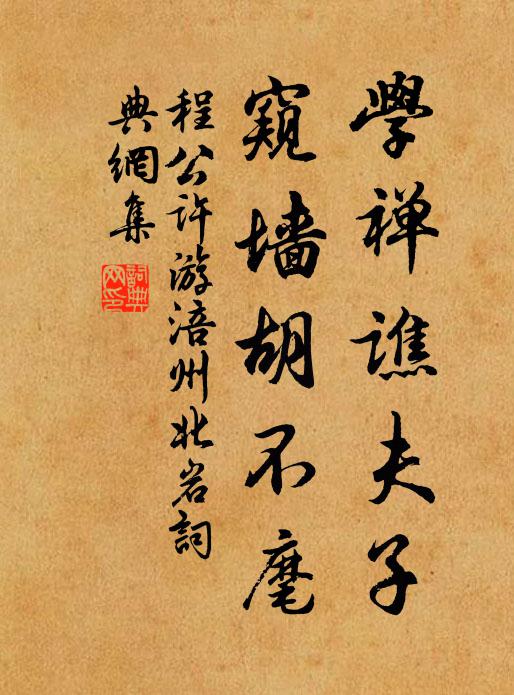 學禅譙夫子
窺墙胡不麾
程公许游涪州北岩詞
典網集
詞典网印